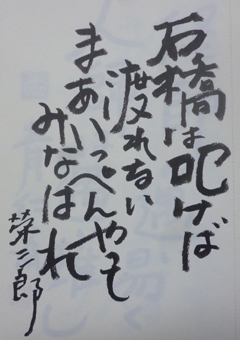 石橋は叩けば
渡れない
まあいっぺんやって
みなはれ
榮三郎